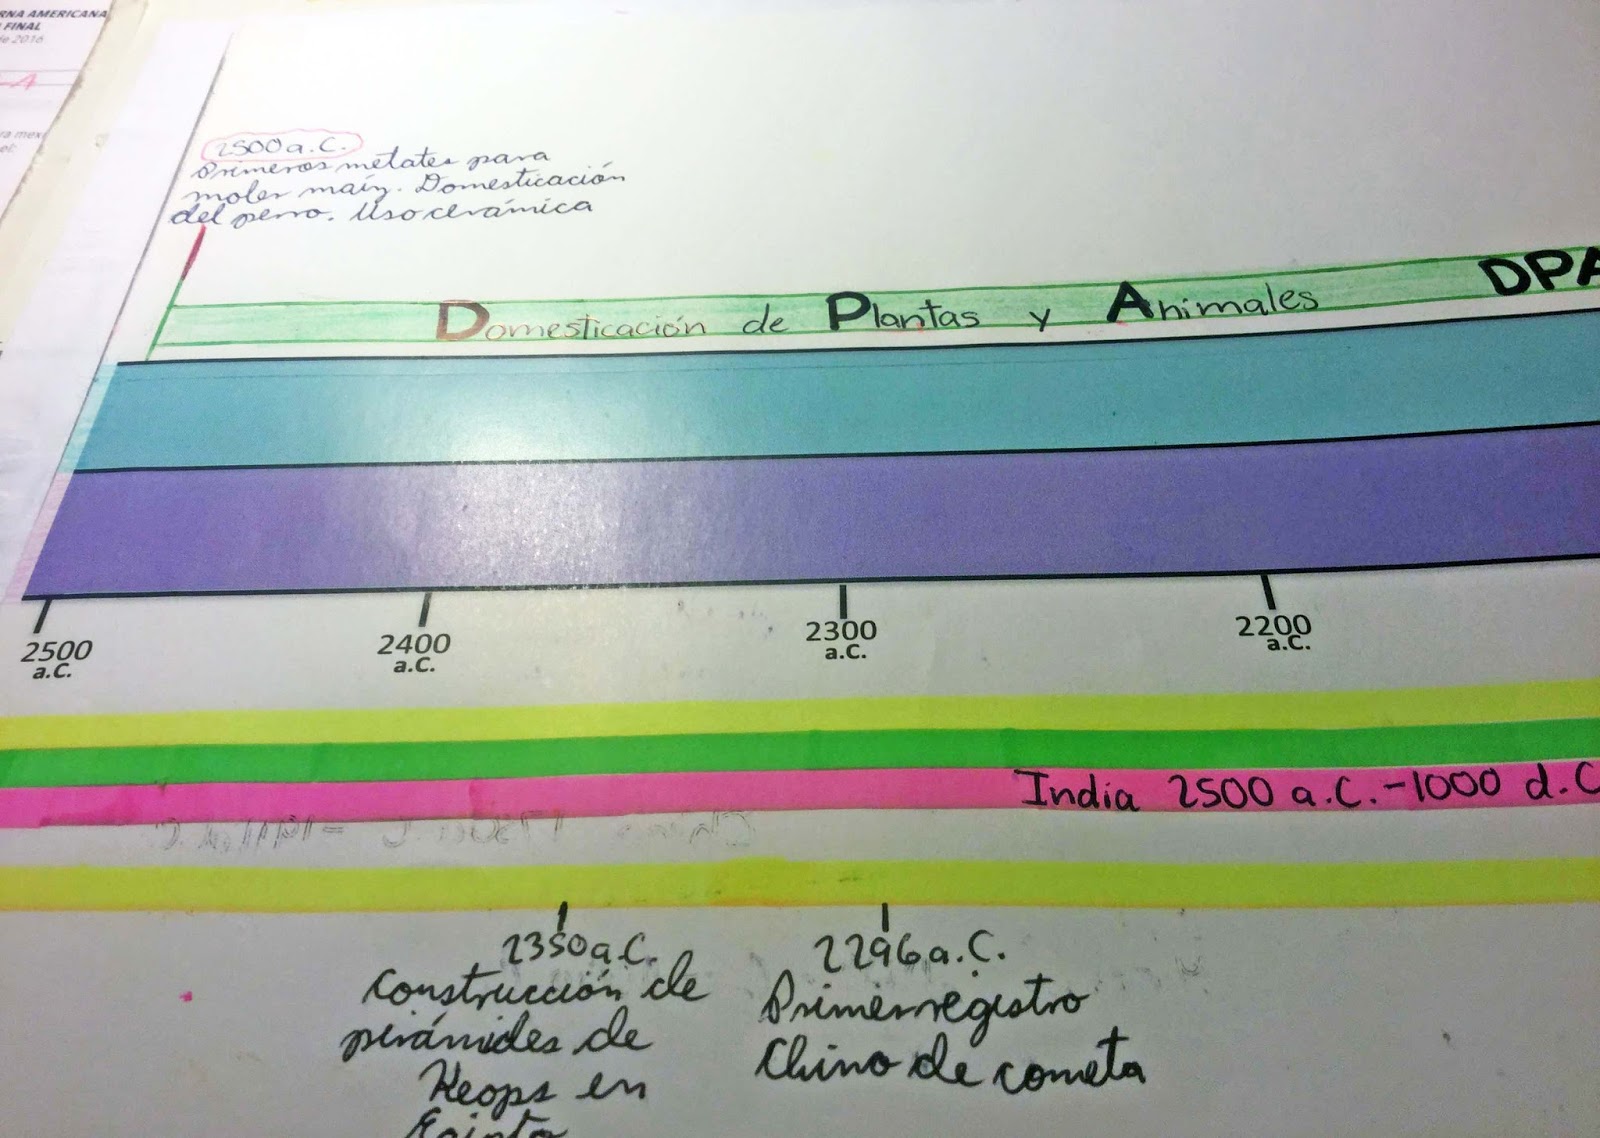 RNA AMERICANA
FINAL
de 2016
A
ra mex
el:
2500 a.C.
Primeros metates para
moler maíz. Domesticación
del perro. Uso cerámica
Domesticación de Plantas y Animales
DPA
2500
a.C.
2400
a.C.
2300
a.C.
2200
a.C.
India 2500 a.C.-1000 d.C
2350 a.C.
Construcción de
pirámides de
Keops en
Egipto
2296 a.C.
Primer registro
Chino de cometa